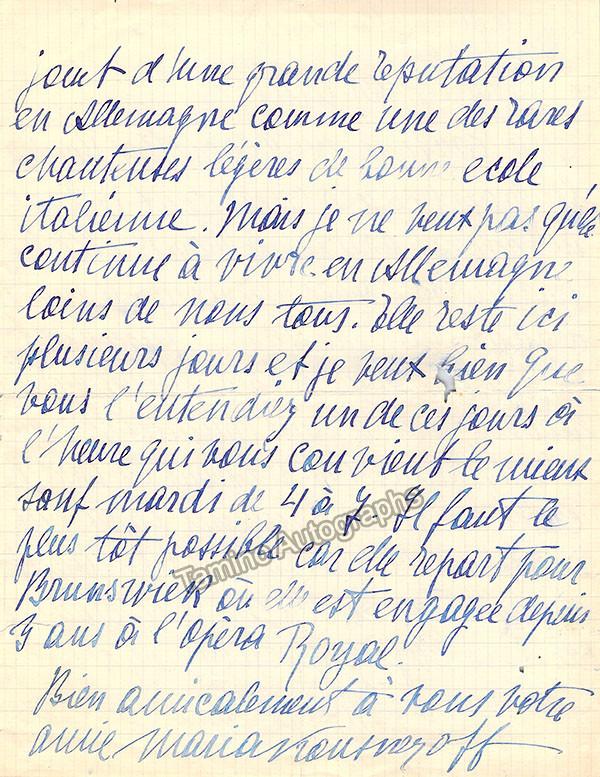 jouit d'une grande reputation
en Allemagne comme une des rares
chanteuses légères de bonne ecole
italiénne. Mais je ne veux pas qu'elle
continue à vivre en Allemagne
loins de nous tous. Elle reste ici
plusieurs jours et je veux bien que
vous l'entendiez un de ces jours à
l'heure qui vous convient le mieux
sauf mardi de 4 à 7. Il faut le
plus tôt possible car elle repart pour
Brunswick où elle est engagée depuis
3 ans à l'opéra Royal.
Bien amicalement à vous votre
amie Maria Kousnezoff
Tamino Autographs